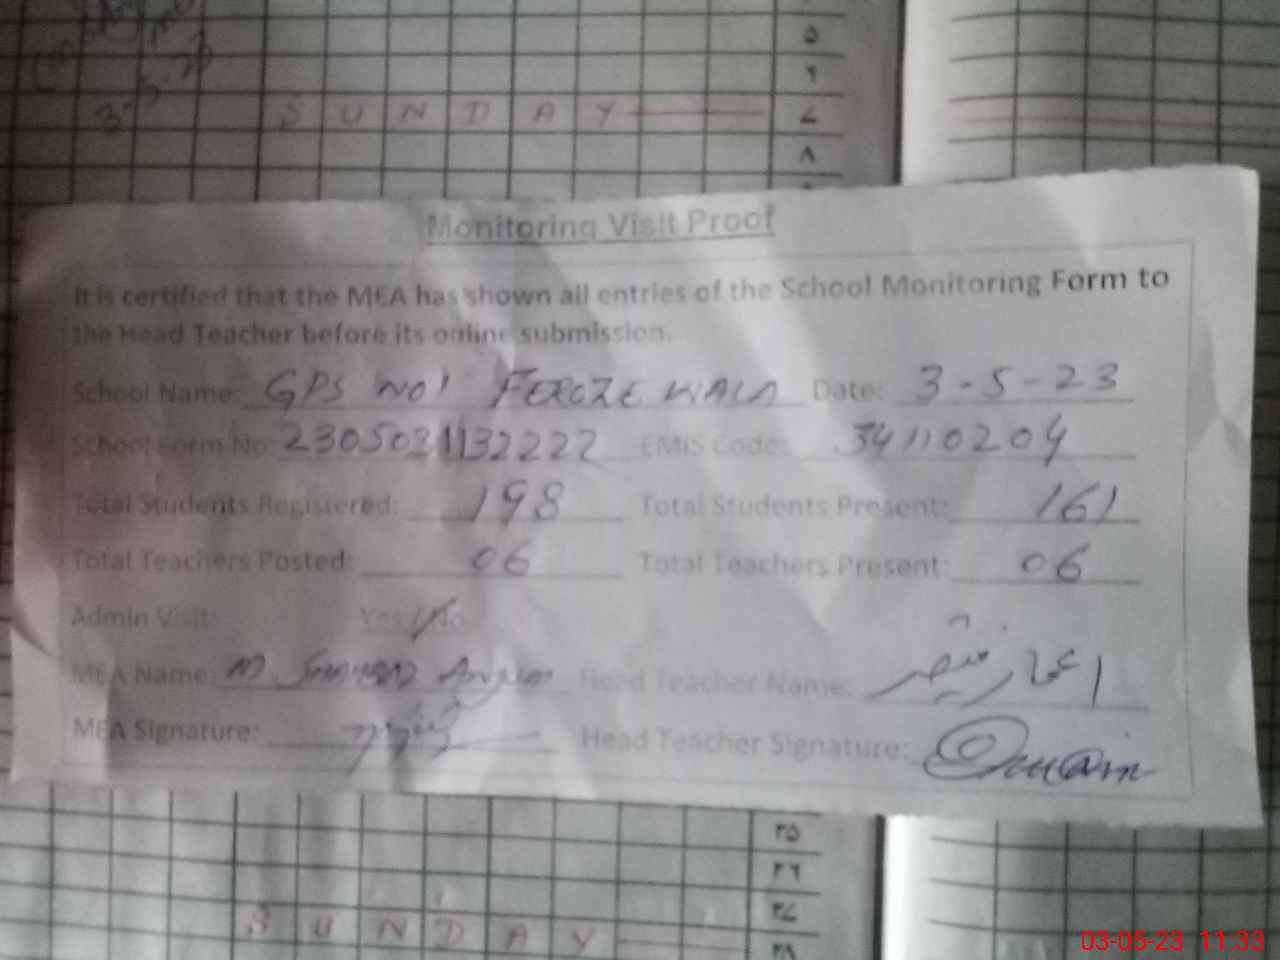 3-5-23
S U N D A Y
۵
۶
۷
۸
Monitoring Visit Proof
It is certified that the MEA has shown all entries of the School Monitoring Form to
the Head Teacher before its online submission.
School Name: GPS NO1 FEROZE WALA Date: 3-5-23
School Form No: 2305031132222 EMIS Code: 34110204
Total Students Registered: 198 Total Students Present: 161
Total Teachers Posted: 06 Total Teachers Present: 06
Admin Visit: Yes/No
MEA Name: M Head Teacher Name:
MEA Signature: Head Teacher Signature:
۲۵
۲۶
۲۷
S U N D A Y
۲۸
03-05-23 11:33